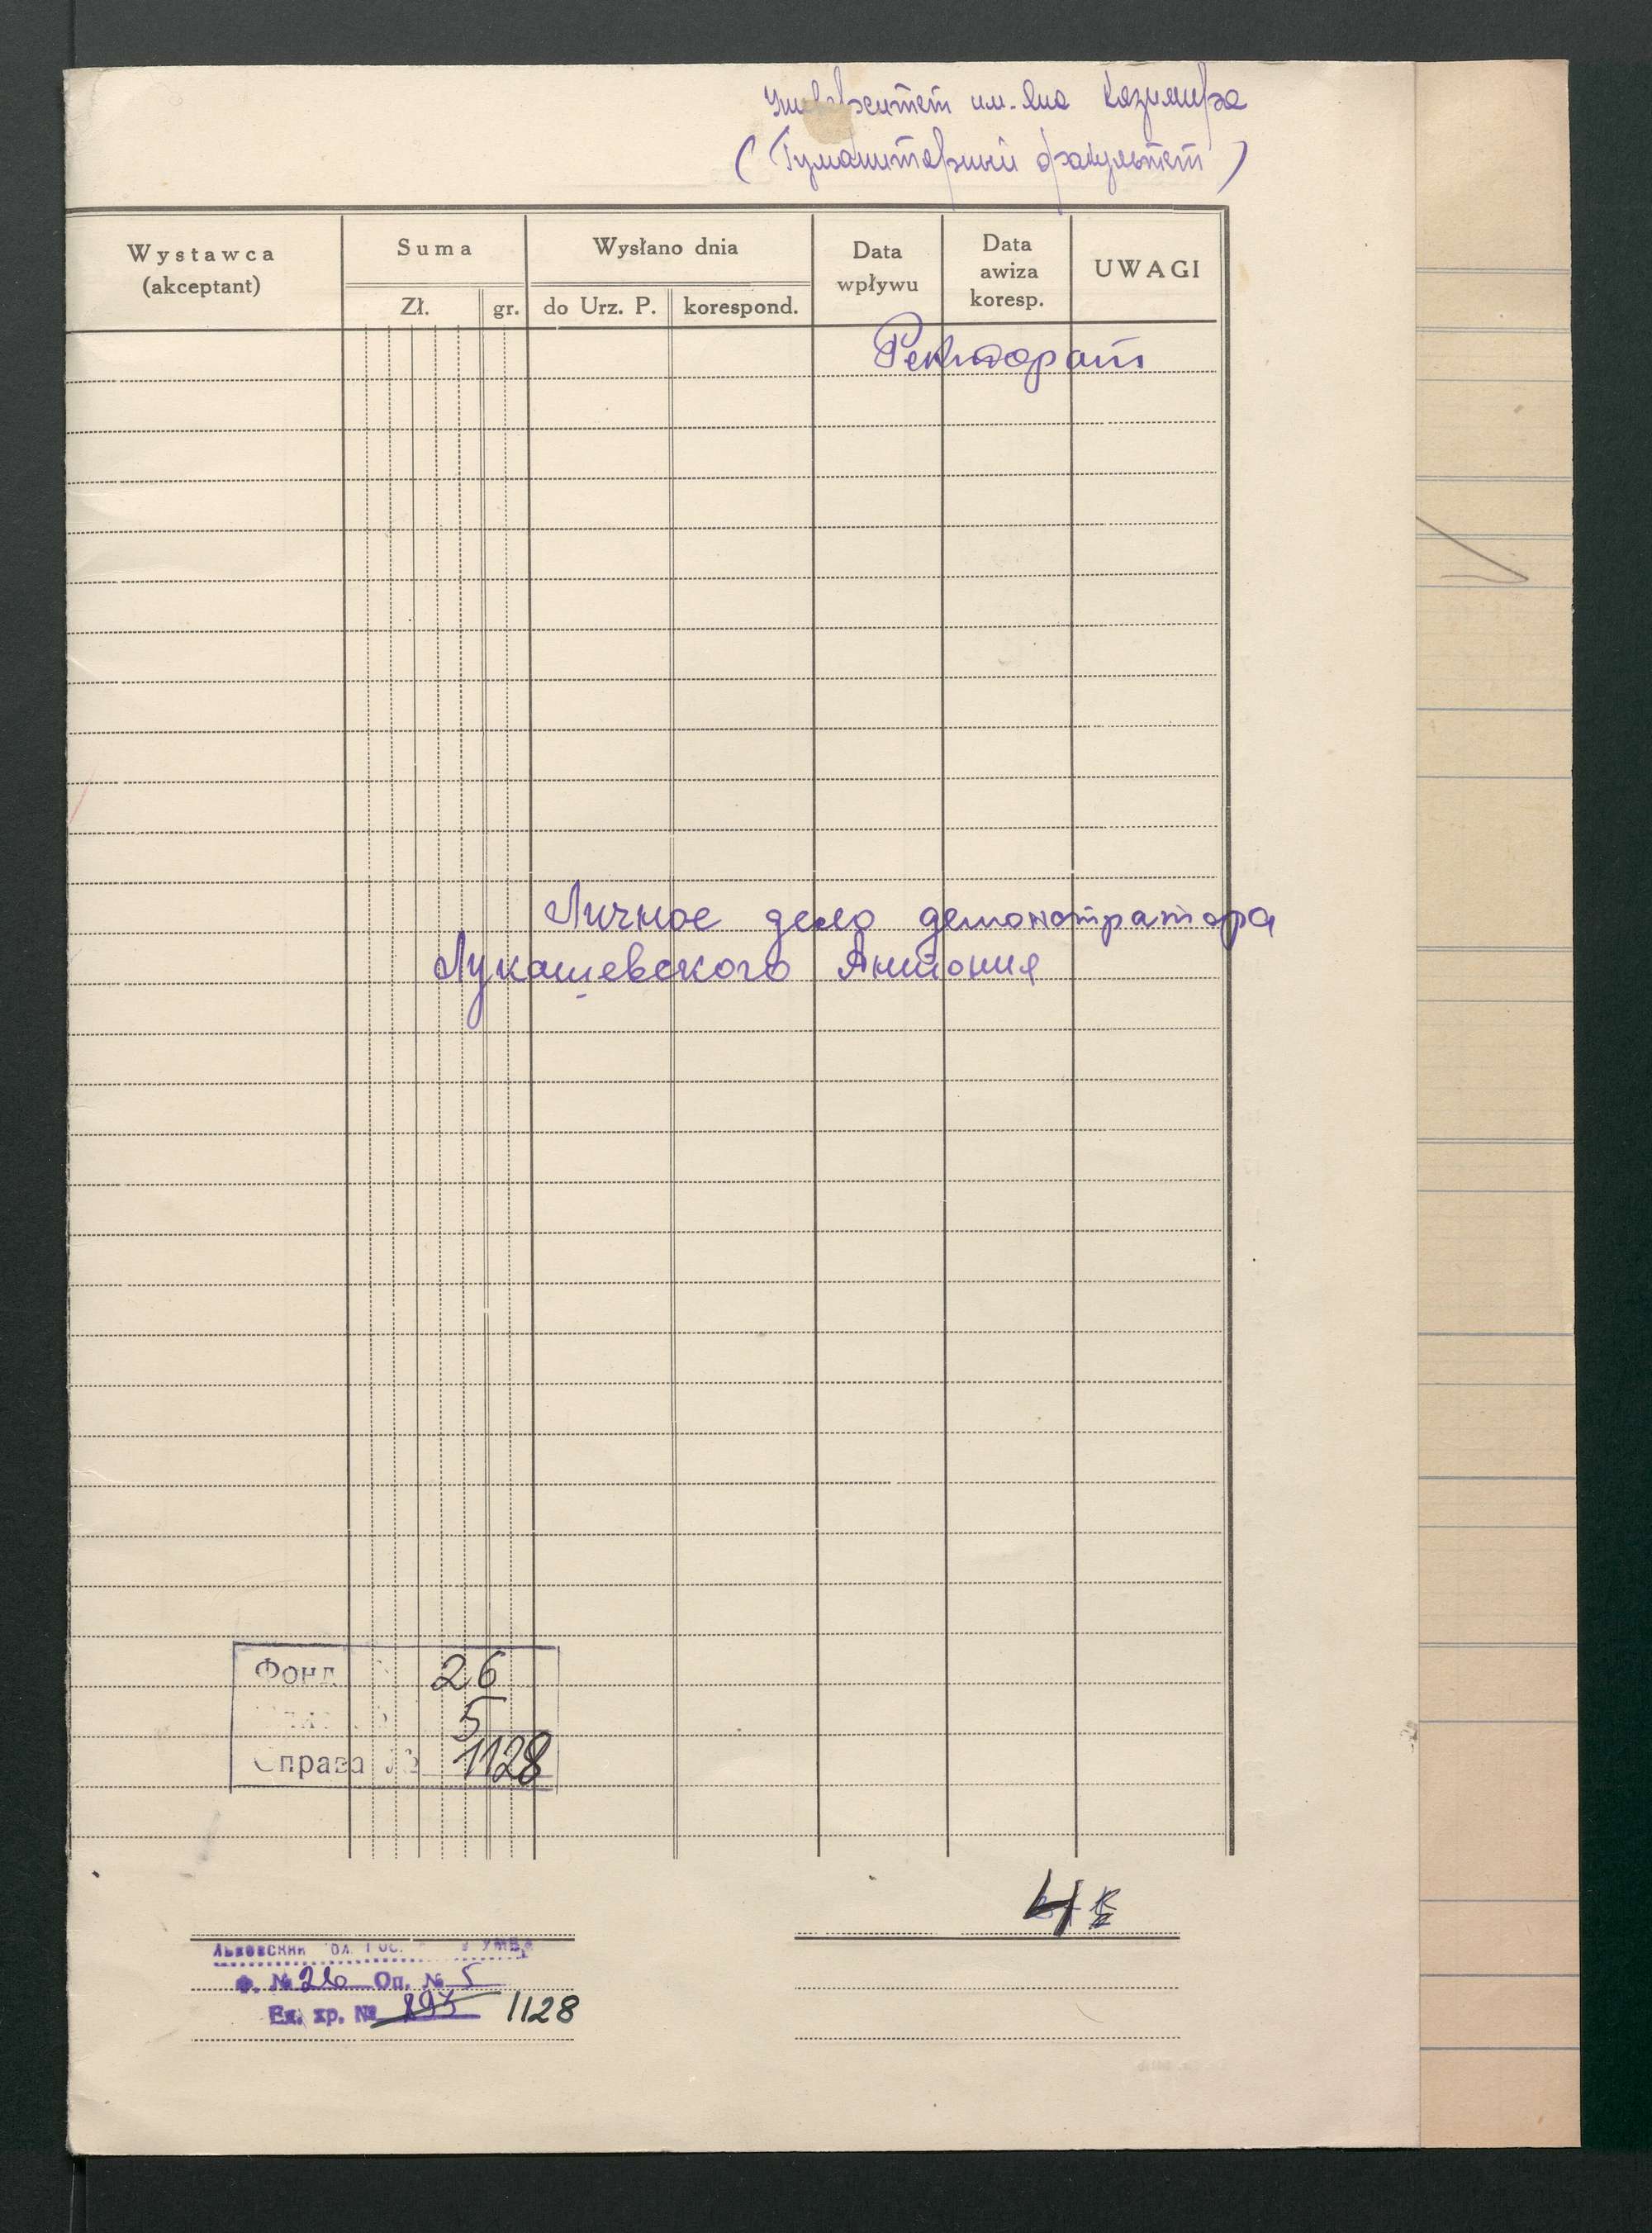 Университет им. Яна Казимира
(Гуманитарный факультет)
Wystawca
(akceptant)
Suma
Zł. gr.
Wysłano dnia
do Urz. P. korespond.
Data
wpływu
Data
awiza
koresp.
UWAGI
Ректорат
Личное дело демонстратора
Лукашевского Антония
Фонд 26
5
Справа № 1128
4
Львовский
Ф. № 26 Оп. № 5
Ед. хр. № 1128